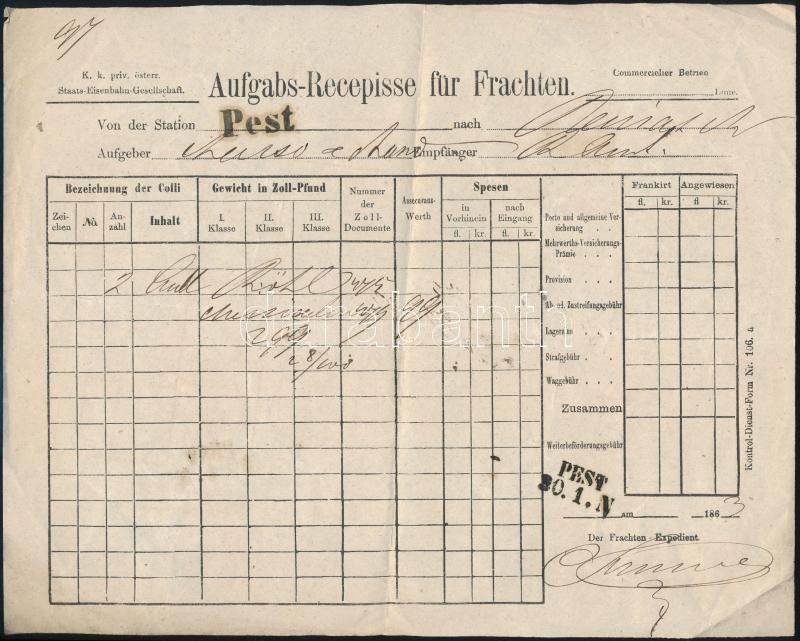 K. k. priv. österr.
Staats-Eisenbahn-Gesellschaft.
Aufgabs-Recepisse für Frachten.
Commercieller Betrieb
Linie.
Von der Station Pest nach
Aufgeber Empfänger
Bezeichnung der Colli
Gewicht in Zoll-Pfund
Nummer der Zoll-Documente
Assecuranz-Werth
Spesen
Frankirt
Angewiesen
Zeichen
No.
Anzahl
Inhalt
I. Klasse
II. Klasse
III. Klasse
in Vorhinein
nach Eingang
fl. kr. fl. kr.
fl. kr. fl kr.
Porto und allgemeine Versicherung . .
Mehrwerths-Versicherungs-Prämie . . .
Provision . . .
Ab- od. Zustreifungsgebühr
Lagerzins . . .
Strafgebühr . . .
Waggebühr . . .
Zusammen
Weiterbeförderungsgebühr
2
darabanth
PEST
30. 1. N
am 1863
Der Frachten Expedient
Kontrol-Dienst-Form Nr. 106. a